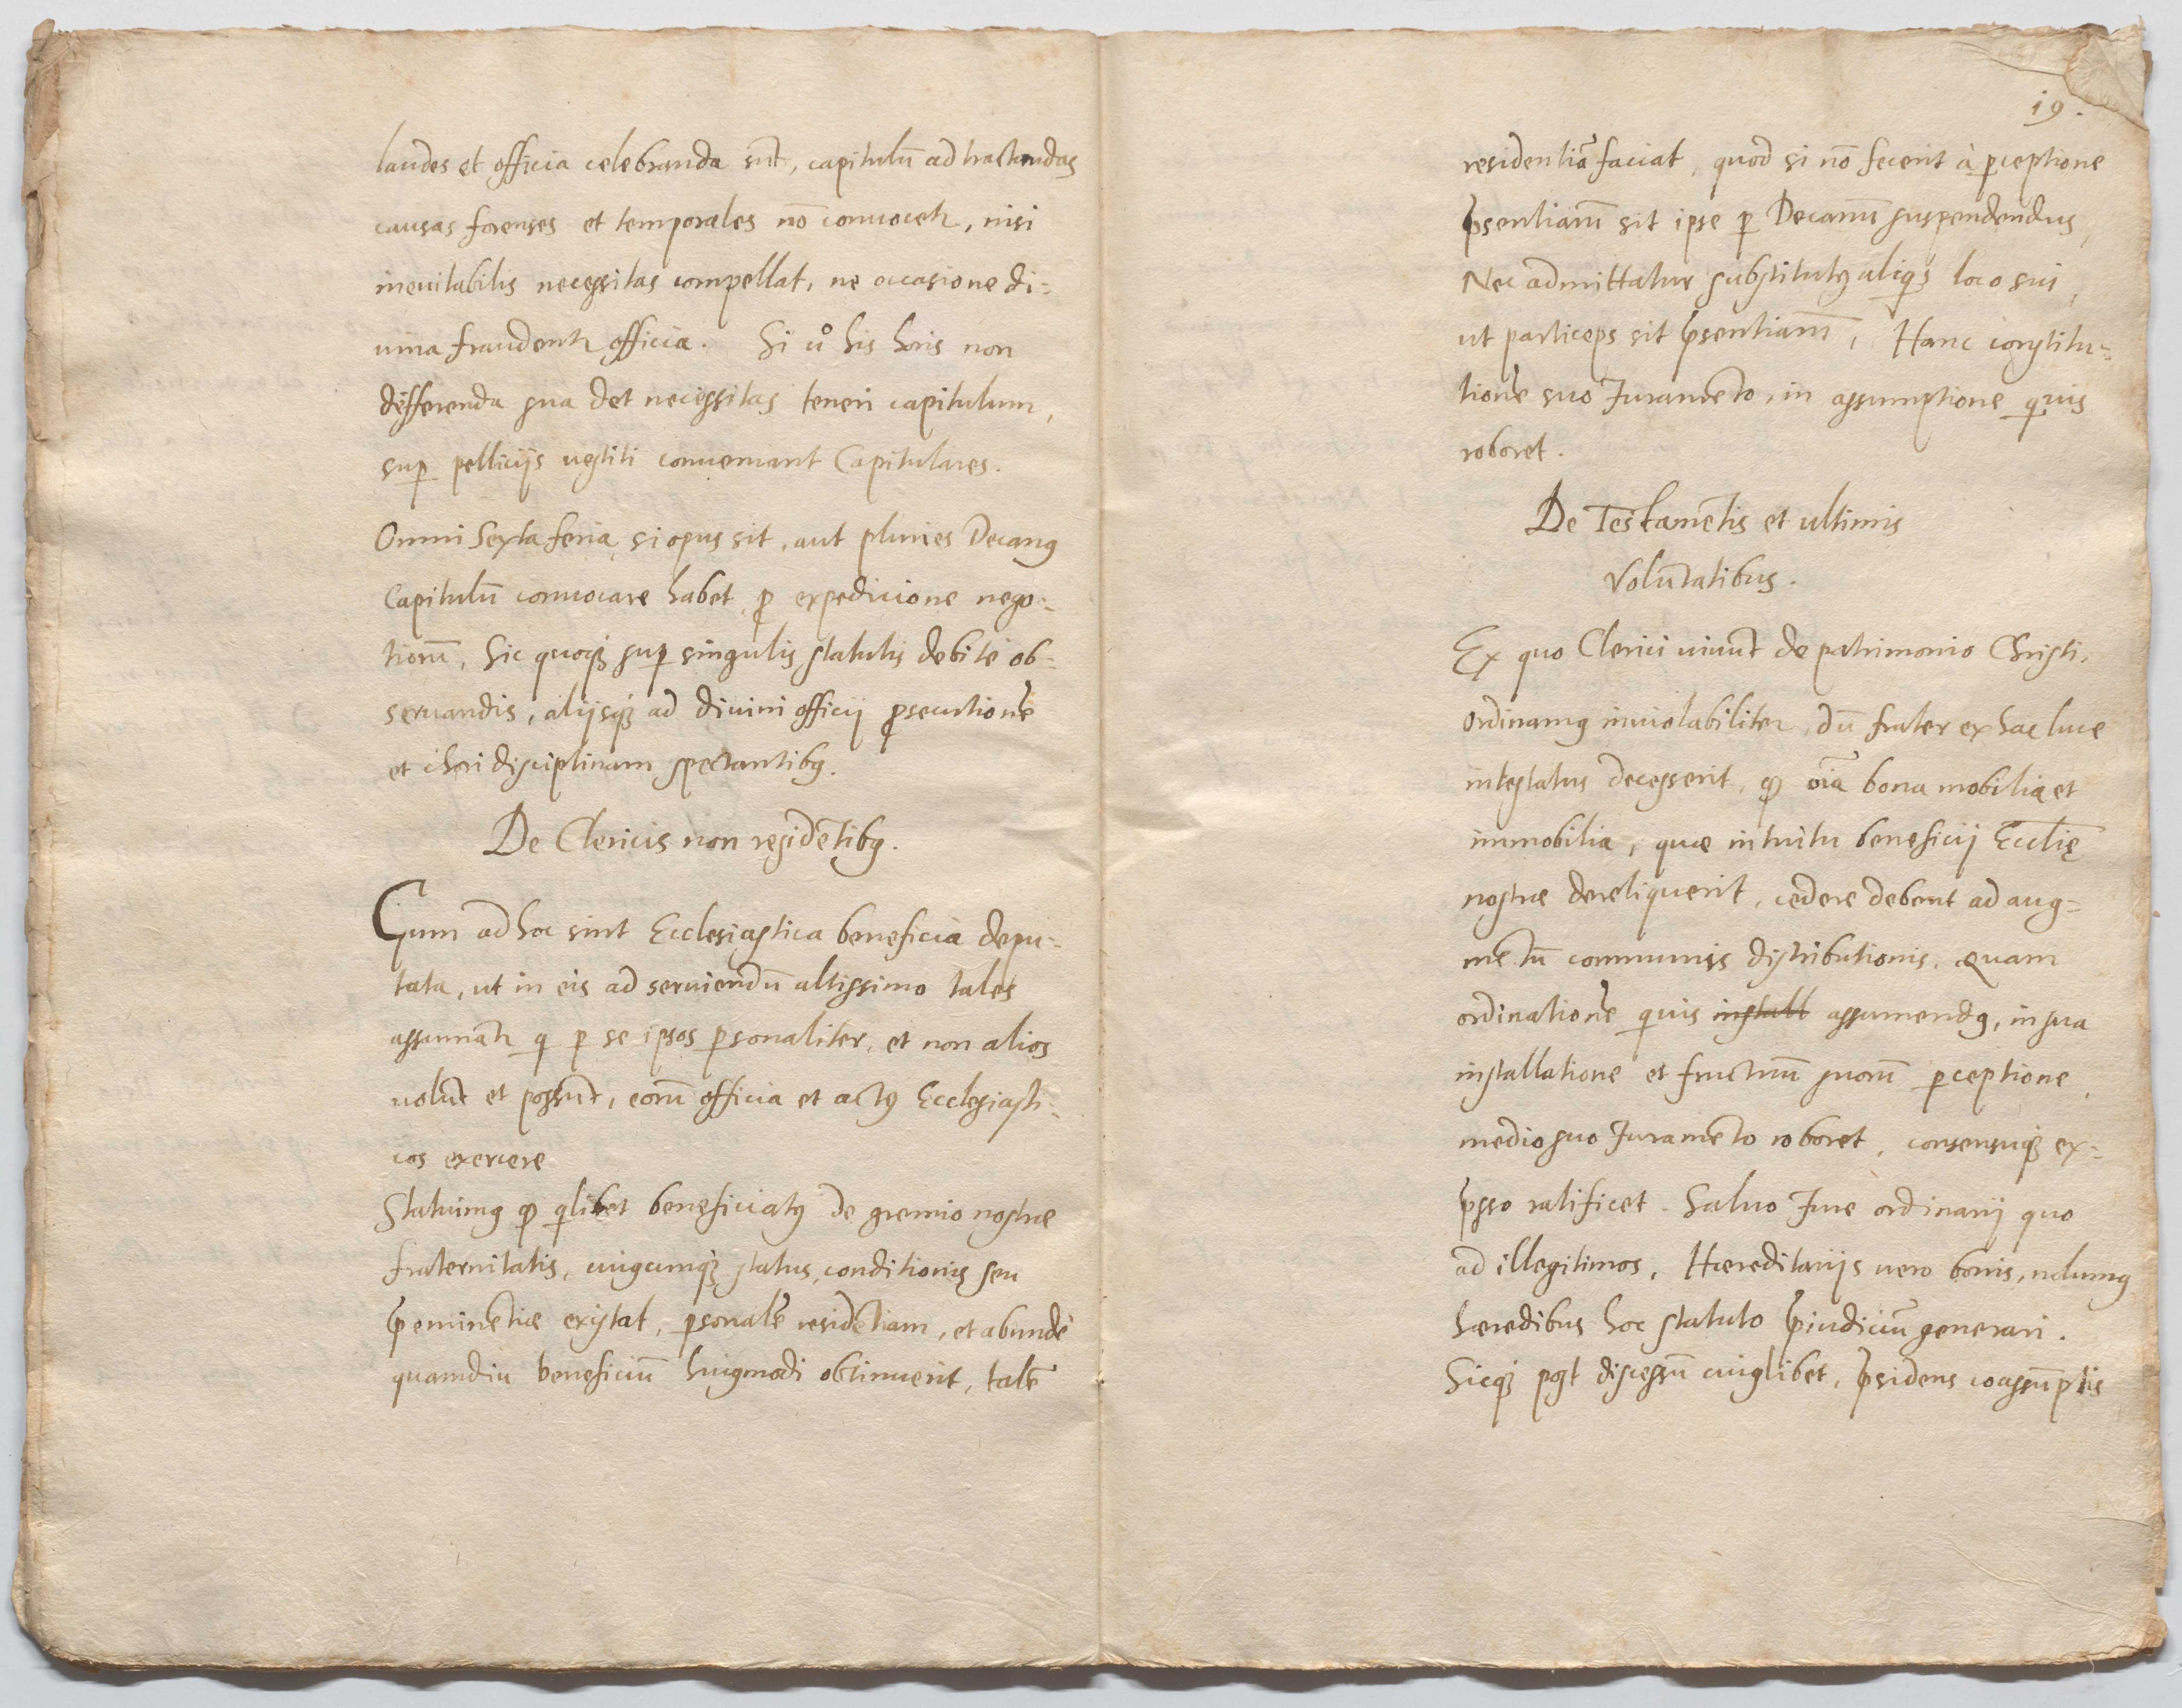 laudes et officia celebranda sūt, capitulū ad tractandas
causas forenses et temporales nō conuocetꝛ, nisi
ineuitabilis necessitas compellat, ne occasione di-
uina fraudentꝛ officia. Si uͦ his horis non
differenda sua det necessitas teneri capitulum,
suꝑ pelliciis uestiti conueniant Capitulares.
Omni Sexta feria, si opus sit, aut pluries Decanꝰ
Capitulū conuocare habet, ꝓ expedicione nego-
tiorū, Sic quoqꝫ suꝑ singulis statutis debite ob-
seruandis, alijsqꝫ ad diuini officij ꝓsecutionē
et chori disciplinam spectantibꝰ.
De Clericis non residētibꝰ.
Cum ad hoc sint Ecclesiastica beneficia depu-
tata, ut in eis ad seruiendū altissimo tales
assumātꝛ q̄ ꝑ se ipsos ꝑsonaliter, et non alios
uolūt et possūt, eorū officia et actꝰ Ecclesiasti-
cos exercere
Statuimꝰ ꝙ qͥlibet beneficiatꝰ de gremio nostrae
fraternitatis, cuiꝰcumqꝫ status, conditionis seu
p̄eminētiae existat, ꝑsonalē residētiam, et abundè
quamdiu beneficiū huiꝰmodi obtinuerit, talē
19.
residentiā faciat, quod si nō fecerit à ꝑceptione
p̄sentiarū sit ipse ꝑ Decanū suspendendus,
Nec admittatur substitutꝰ aliqͥs loco sui,
ut particeps sit p̄sentiarū, Hanc constitu-
tionē suo Iuramēto, in assumptione quis
roboret.
De Testamētis et ultimis
Volūtatibus.
Ex quo Clerici uiuūt de patrimonio Christi,
Ordinamꝰ inuiolabiliter, dū frater ex hac luce
intestatus decesserit, ꝙ oīa bona mobilia et
immobilia, quae intuitu beneficij Ecclīę
nostrae dereliquerit, cedere debent ad aug-
mētū communis distributionis. Quam
ordinationē quis install assumendꝰ, in sua
installatione et fructuū suorū ꝑceptione,
medio suo Iuramēto roboret, consensuqꝫ ex-
p̄sso ratificet. Saluo Iure ordinarij quo
ad illegitimos, Haereditarijs uero bonis, nolumꝰ
haeredibus hoc statuto p̄iudiciū generari.
Sicqꝫ post discessū cuiꝰlibet, p̄sidens coassūptis